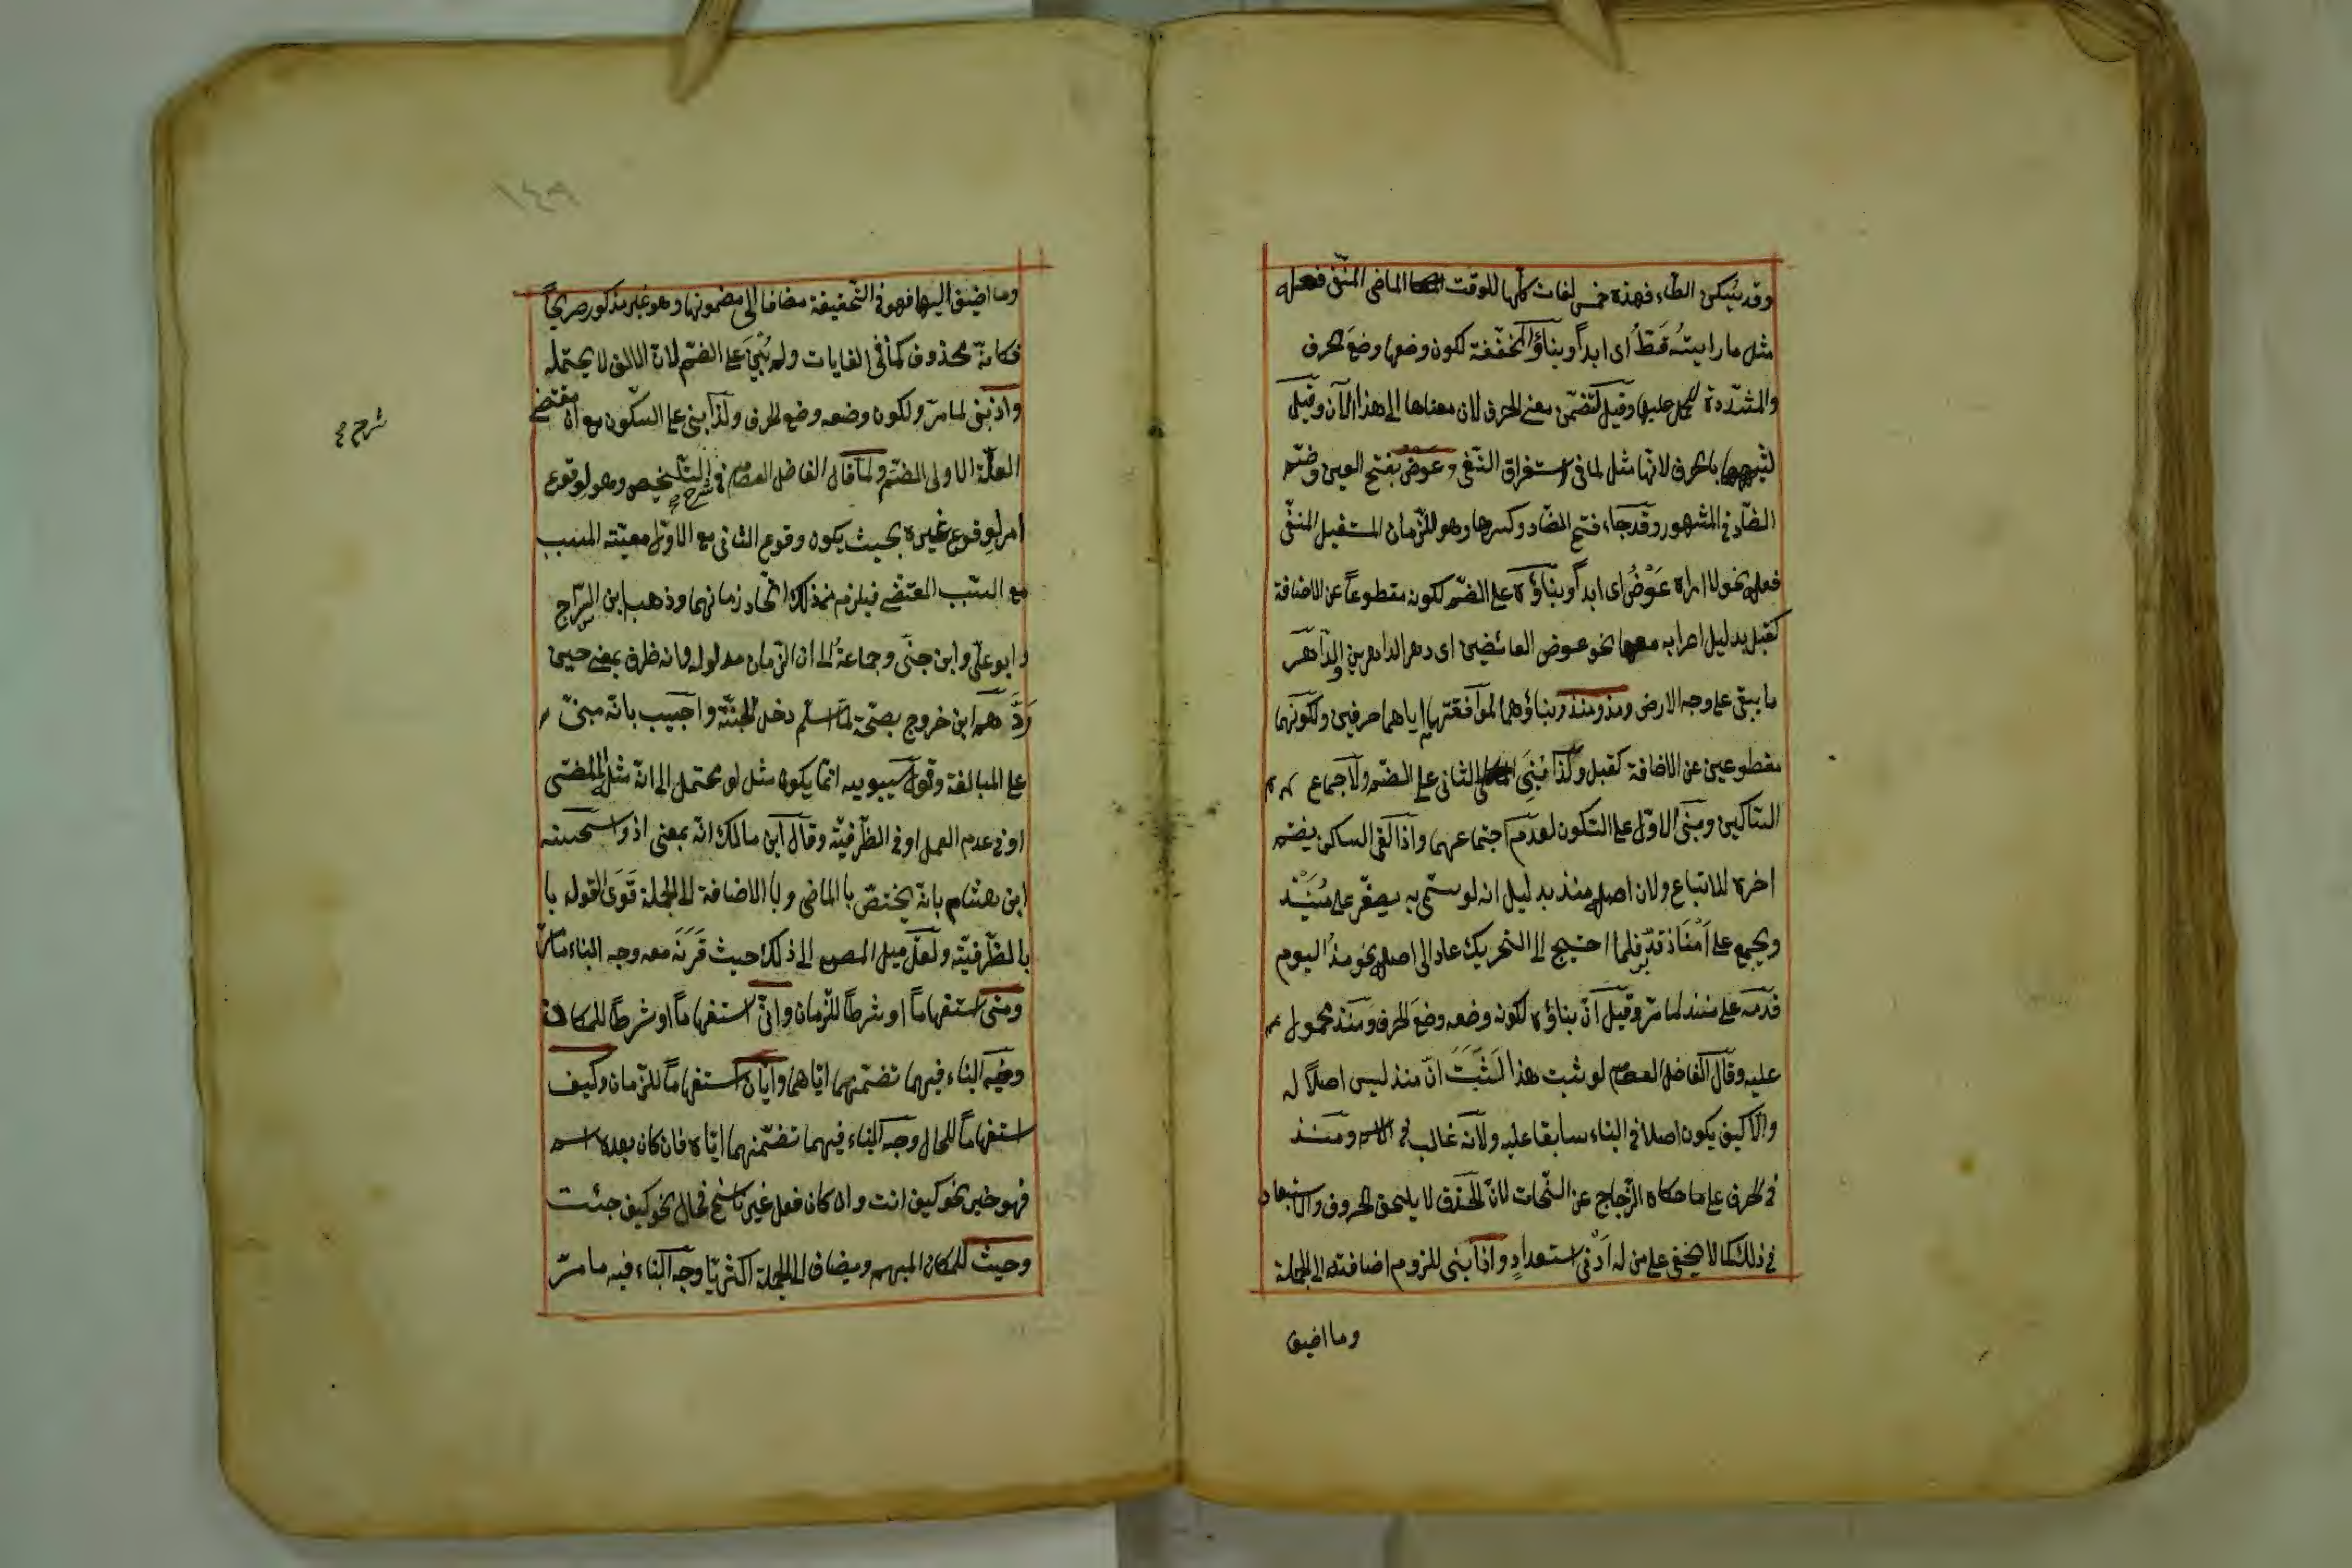 وقد يسكن الطاء فهذه خمس لغات كلها للوقت الماضى المنفى فعله
مثل ما رايتُه قَطُّ اى ابداً وبناؤ المخففة لكون وضعها وضعَ الحرف
والمشددة للحمل عليها وقيل لتضمن معنى الحرف لان معناها الى هذا الآن وقيل
لشبهها بالحرف لانها مثل لما فى استغراق النفى وعوض بفتح العين وضم
الضاد فى المشهور وقد جاء فتح الضاد وكسرها وهو للزمان المستقبل المنفى
فعله نحو لا اراه عَوْضُ اى ابداً وبناؤه على الضم لكونه مقطوعاً عن الاضافة
كقبل بدليل اعرابه معها نحو عوض العائضين اى دهر الداهرين والداهر
ما يبقى على وجه الارض ومذ ومنذ وبناؤهما لموافقتهما اياهما حرفين ولكونهما
مقطوعين عن الاضافة كقبل وكذا بُنِىَ الثانى على الضم ولاجماع
الساكنين وبنى الاول على السكون لعدم اجتماعهما واذا لقى الساكن يضم
اخره للاتباع ولان اصله منذ بدليل انه لو سمى به يصغر على مُنَيْذ
ويجمع على اَمْنَاذ فلما احتيج الى التحريك عاد الى اصله نحو مذُ اليوم
قدمه على منذ لما مر وقيل ان بناؤه لكونه وضعه وضعَ الحرف ومنذ محمول
عليه وقال الفاضل العصام لو ثبت هذا لَثَبَتَ ان منذ ليس اصلاً له
والا كيف يكون اصلا فى البناء سابقا عليه ولانه غالب فى الاسم ومنذ
فى الحرف على ما حكاه الزجاج عن النحات لان الحذف لا يلحق الحروف والاستبعاد
فى ذلك كما لا يخفى على من له اَدْنى استعدادٍ واذا بنى للزوم اضافته الى الجملة
وما اضيف
١٤٩
وما اضيف اليها فهو فى الحقيقة مضافا الى مضمونها وهو غير مذكور صريحاً
فكانه محذوف كما فى الغايات ولم يُبْنَ على الضم لان الالف لا يحتمله
واذ بنى لما مر ولكون وضعه وضع الحرف ولذا بنى على السكون مع ان مقتضى
العلة الاولى الضم ولما قال الفاضل العصام فى شرح التلخيص وهو لوقوع
امر لوقوع غيره بحيث يكون وقوع الثانى مع الاول معية المسبب
مع السبب المقتضى فيلزم من ذلك اتحاد زمانهما وذهب ابن السراج
وابو على وابن جنى وجماعةٌ الى ان الزمان مدلوله وانه ظرف بمعنى حين
رَدَّهم ابن خروج بصحة لما اسلم دخل الجنة واجيب بانه مبنى
على المبالغة وقول سيبويه انما يكون مثل لو محتمل الى انه مثل المضى
او فى عدم العمل او فى الظرفية وقال ابن مالك انه بمعنى اذ واستحسنه
ابن هشام بانه يختص بالماضى وبالاضافة الى الجملة قَوَى القول با
بالظرفية ولعل ميل المصنف الى ذلك حيث قَرَنَه معه وجه البناء ما مر
ومتى استفهاماً او شرطاً للزمان وانى استفهاماً او شرطاً للمكان
وجه البناء فيهما تضمنهما اياهما وايان استفهاماً للزمان وكيف
استفهاماً للحال وجه البناء فيهما تضمنهما اياه فان كان بعده اسم
فهو خبر نحو كيف انت وان كان فعل غير ناسخ فحال نحو كيف جئت
وحيث للمكان المبهم ويضاف الى الجملة اكثريا وجه البناء فيه ما مر
شرح